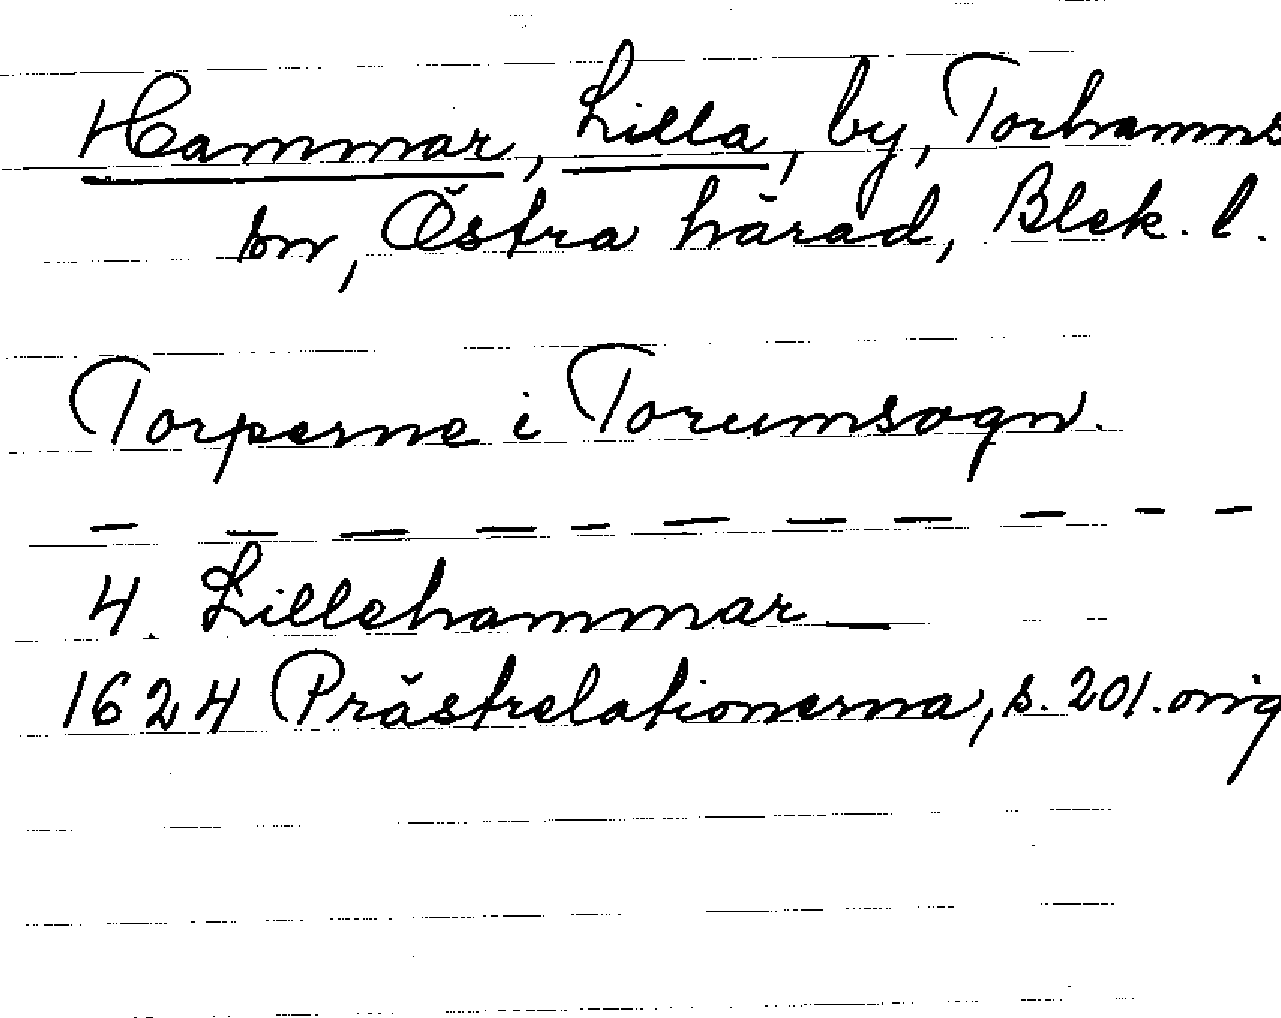 Hammar, Lilla, by, Torhamns
sn, Östra härad, Blek. l.
Torperne i Torumsogn.
— — — — — — — — — — —
4. Lillehammar —
1624 Prästrelationerna, s. 201. orig